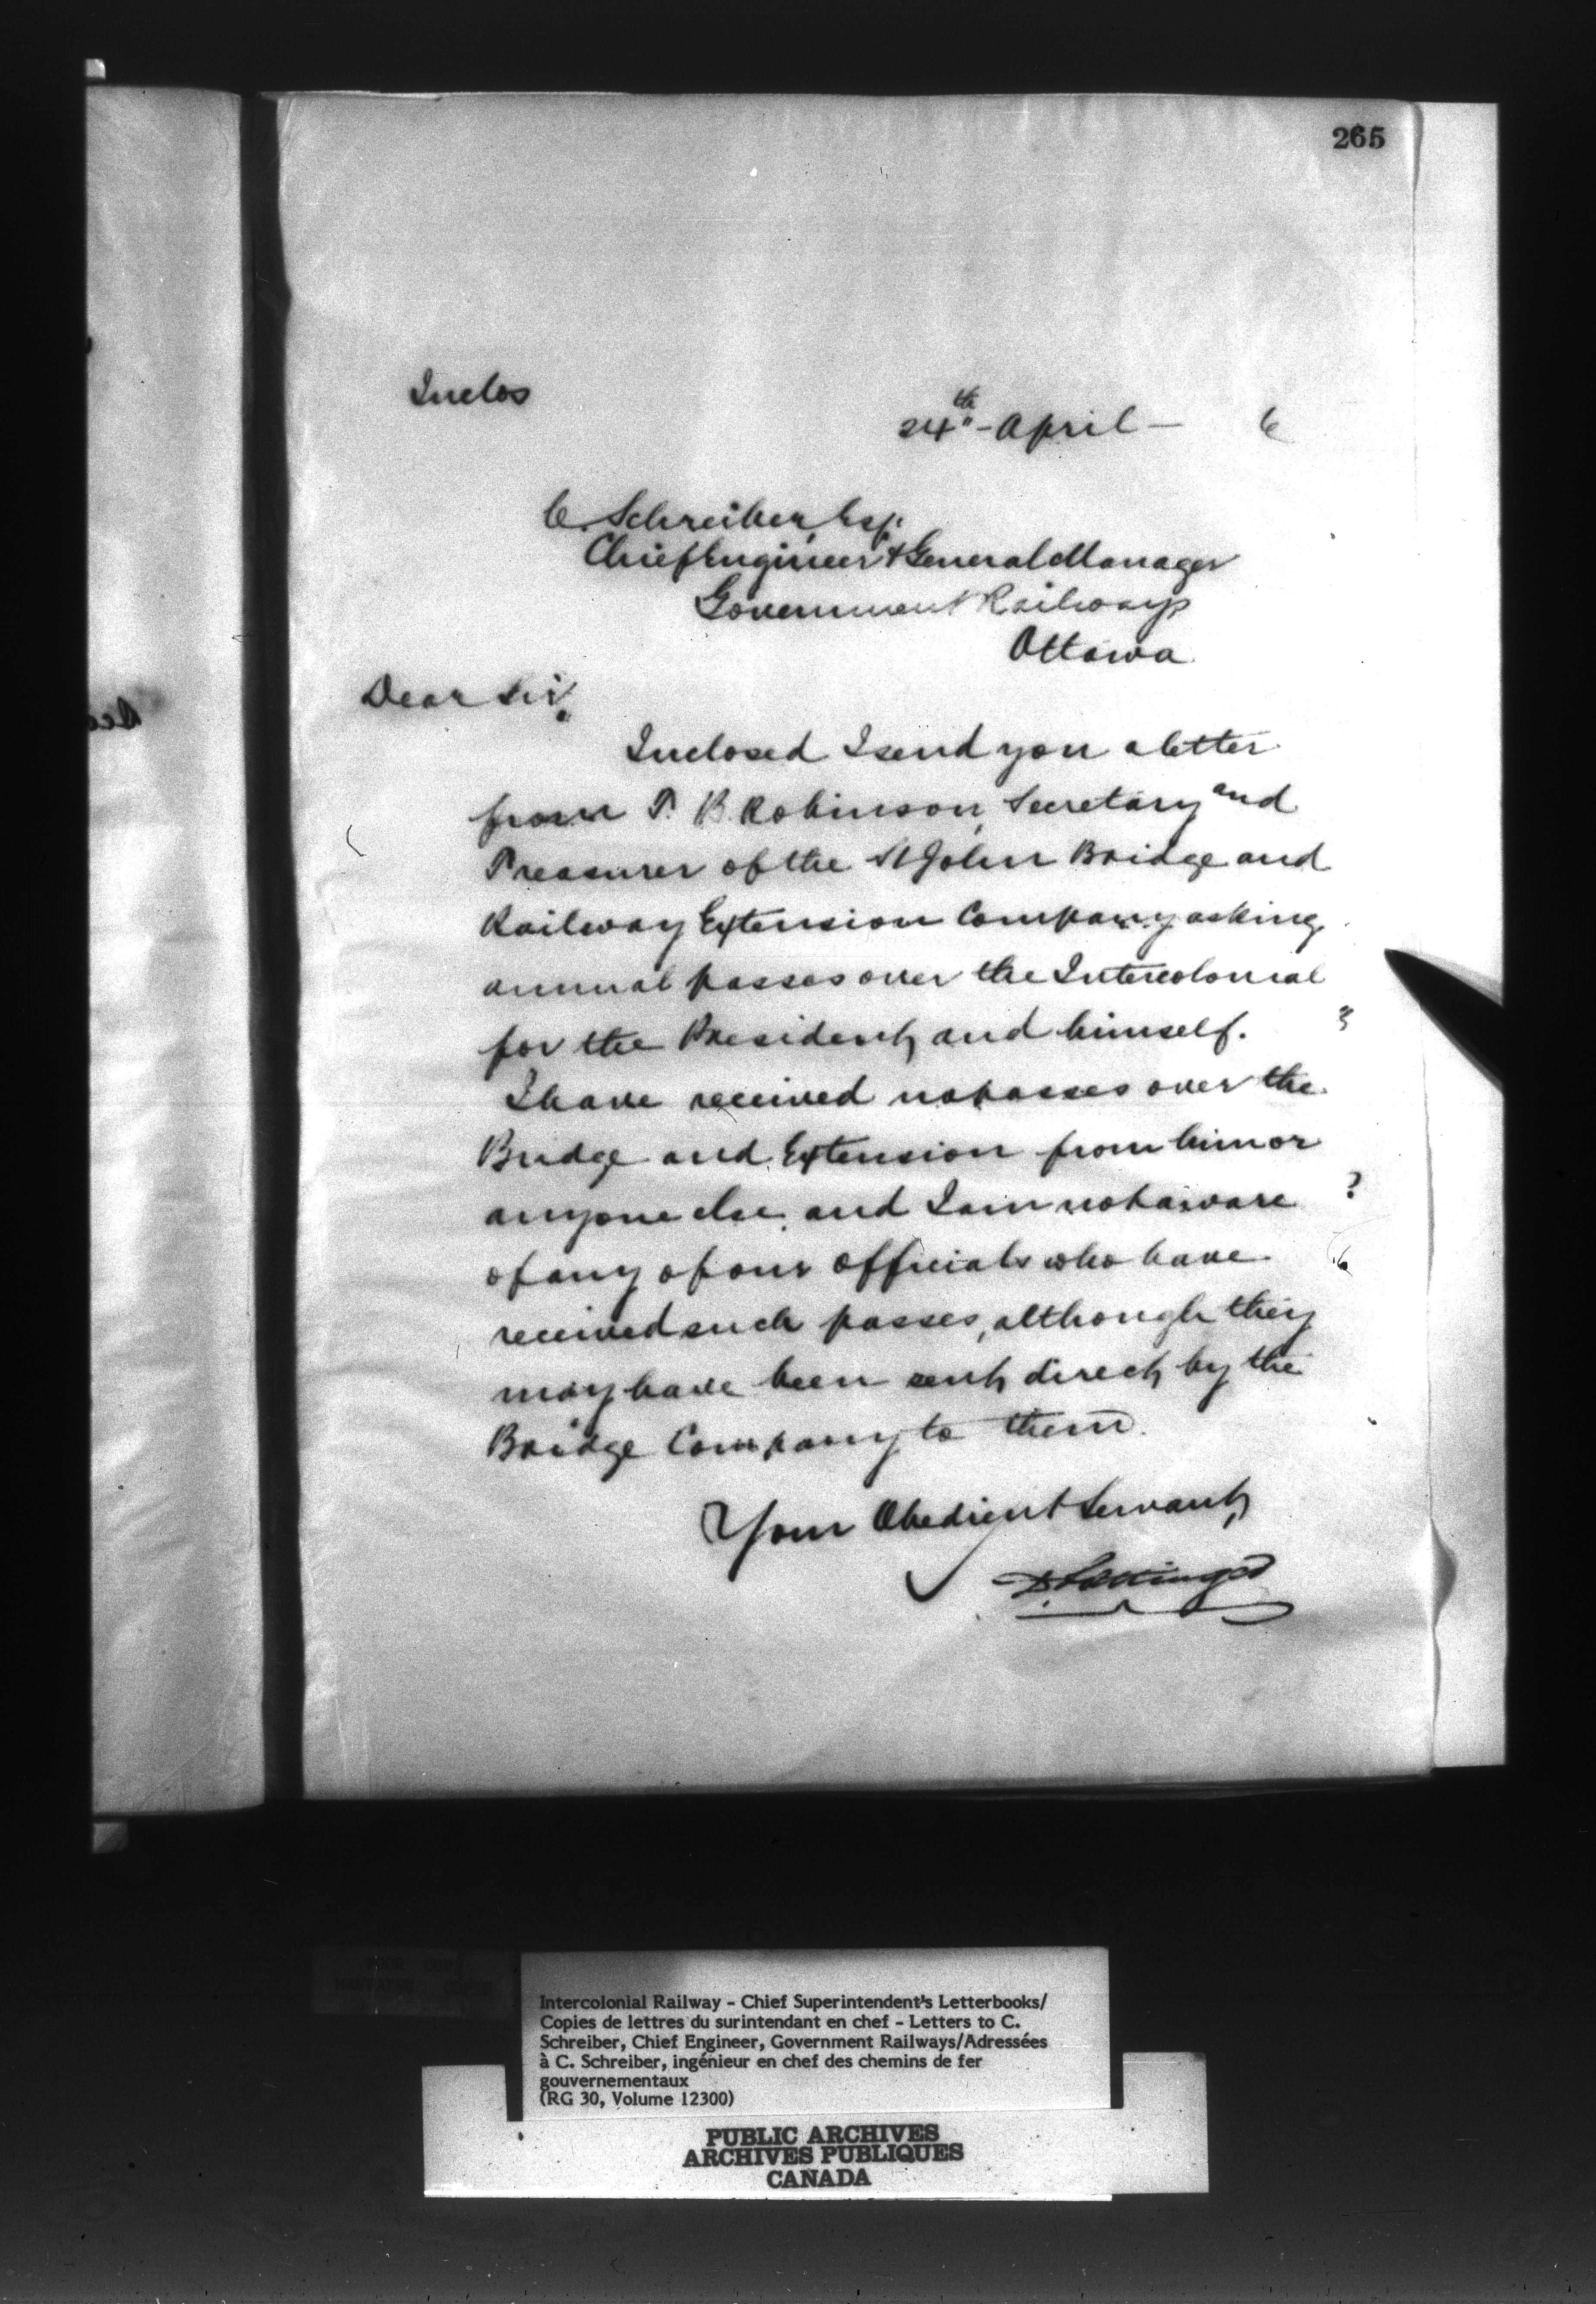 265
Inclos
24th - April - 6
C. Schreiber Esq.
Chief Engineer & General Manager
Government Railways
Ottawa
Dear Sir,
Inclosed I send you a letter
from T. B. Robinson, Secretary and
Treasurer of the St John Bridge and
Railway Extension Company asking
annual passes over the Intercolonial
for the President, and himself.
I have received no passes over the
Bridge and Extension from him or
anyone else and I am not aware
of any of our officials who have
received such passes, although they
may have been sent direct by the
Bridge Company to them.
Your Obedient Servant,
D. Pottinger
Intercolonial Railway - Chief Superintendent's Letterbooks/
Copies de lettres du surintendant en chef - Letters to C.
Schreiber, Chief Engineer, Government Railways/Adressées
à C. Schreiber, ingénieur en chef des chemins de fer
gouvernementaux
(RG 30, Volume 12300)
PUBLIC ARCHIVES
ARCHIVES PUBLIQUES
CANADA